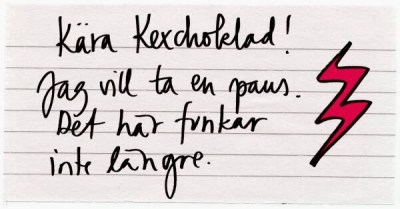 Kära Kexchoklad!
Jag vill ta en paus.
Det här funkar
inte längre.